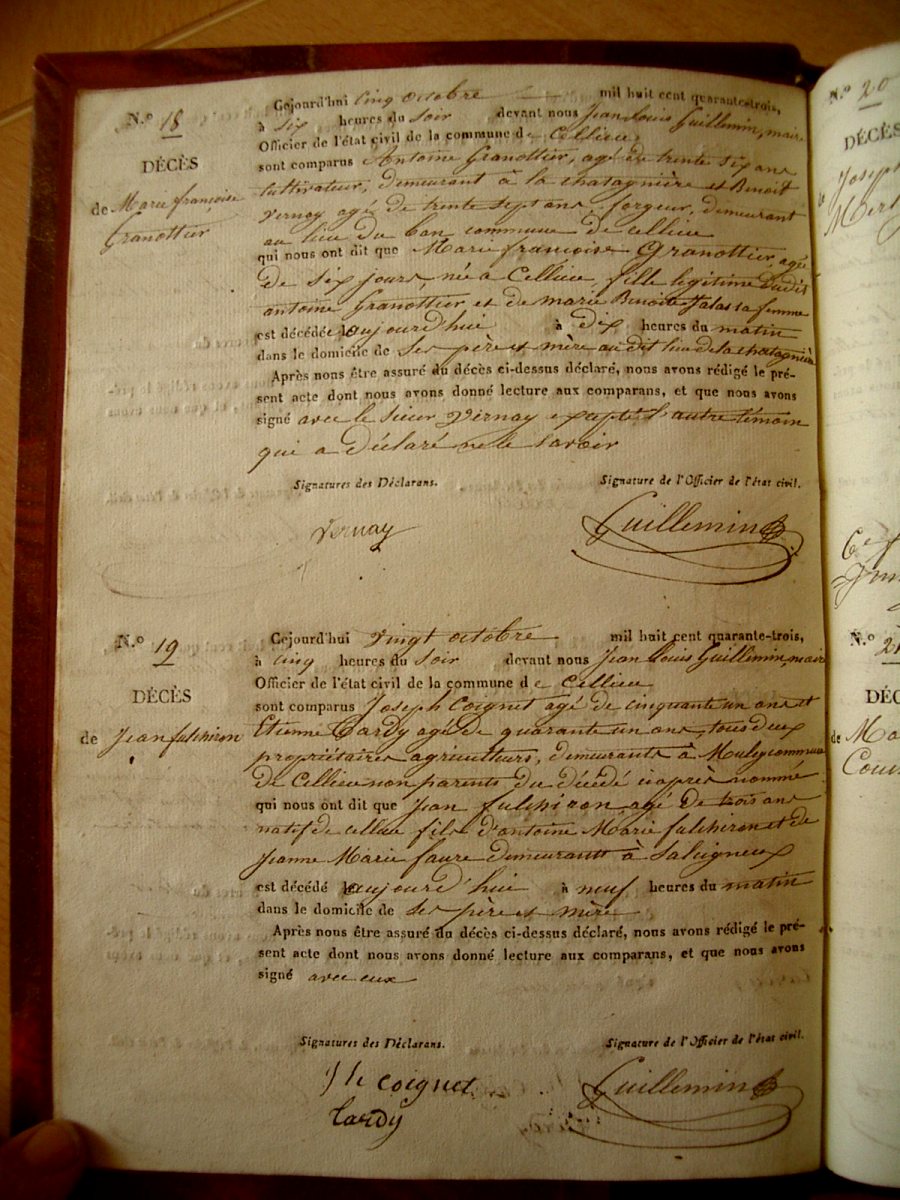 N.º 18
DÉCÈS
de Marie françoise
Granottier
Cejourd'hui cinq octobre mil huit cent quarante-trois,
à six heures du soir devant nous Jean Louis Guillemin, maire
Officier de l'état civil de la commune de Cellieu
sont comparus Antoine Granottier, agé de trente six ans
cultivateur, demeurant à la chatagnière et Benoit
Vernay agé de trente sept ans, forgeur, demeurant
au lieu du ban commune de cellieu
qui nous ont dit que Marie françoise Granottier, agé
de six jours, née à Cellieu, fille légitime dudit
antoine Granottier et de marie Benoite sa femme
est décédée aujourd'hui à dix heures du matin
dans le domicile de ses père et mère au dit lieu de la chatagnière
Après nous être assuré du décès ci-dessus déclaré, nous avons rédigé le pré-
sent acte dont nous avons donné lecture aux comparans, et que nous avons
signé avec le sieur Vernay excepté l'autre témoin
qui a déclaré ne le savoir
Signatures des Déclarans.
Signature de l'Officier de l'état civil.
Vernay
Guillemin
N.º 19
DÉCÈS
de Jean fulchiron
Cejourd'hui vingt octobre mil huit cent quarante-trois,
à cinq heures du soir devant nous Jean Louis Guillemin, maire
Officier de l'état civil de la commune de Cellieu
sont comparus Joseph Coignet agé de cinquante un ans et
Etienne Tardy agé de quarante un ans, tous deux
propriétaires agriculteurs, demeurants à commune
de Cellieu non parents du décédé ciaprès nommé
qui nous ont dit que Jean fulchiron agé de trois ans
natif de cellieu fils d'antoine Marie fulchiron et de
Jeanne Marie faure demeurant à Salcigneux
est décédé aujourd'hui à neuf heures du matin
dans le domicile de ses père et mère
Après nous être assuré du décès ci-dessus déclaré, nous avons rédigé le pré-
sent acte dont nous avons donné lecture aux comparans, et que nous avons
signé avec eux
Signatures des Déclarans.
Signature de l'Officier de l'état civil.
coignet
tardy
Guillemin
N.º 20
DÉCÈS
Joseph